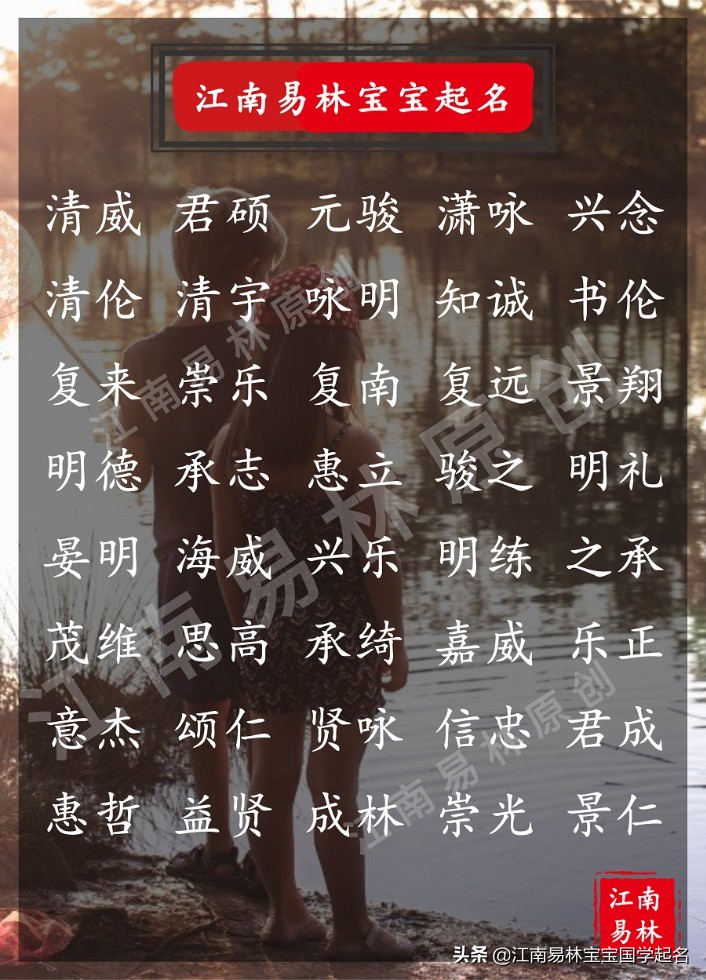 江南易林宝宝起名
清威 君硕 元骏 潇咏 兴念
清伦 清宇 咏明 知诚 书伦
复来 崇乐 复南 复远 景翔
明德 承志 惠立 骏之 明礼
晏明 海威 兴乐 明练 之承
茂维 思高 承绮 嘉威 乐正
意杰 颂仁 贤咏 信忠 君成
惠哲 益贤 成林 崇光 景仁
江南易林原创
江南易林原创
江南易林原创
江南
易林
头条 @江南易林宝宝国学起名